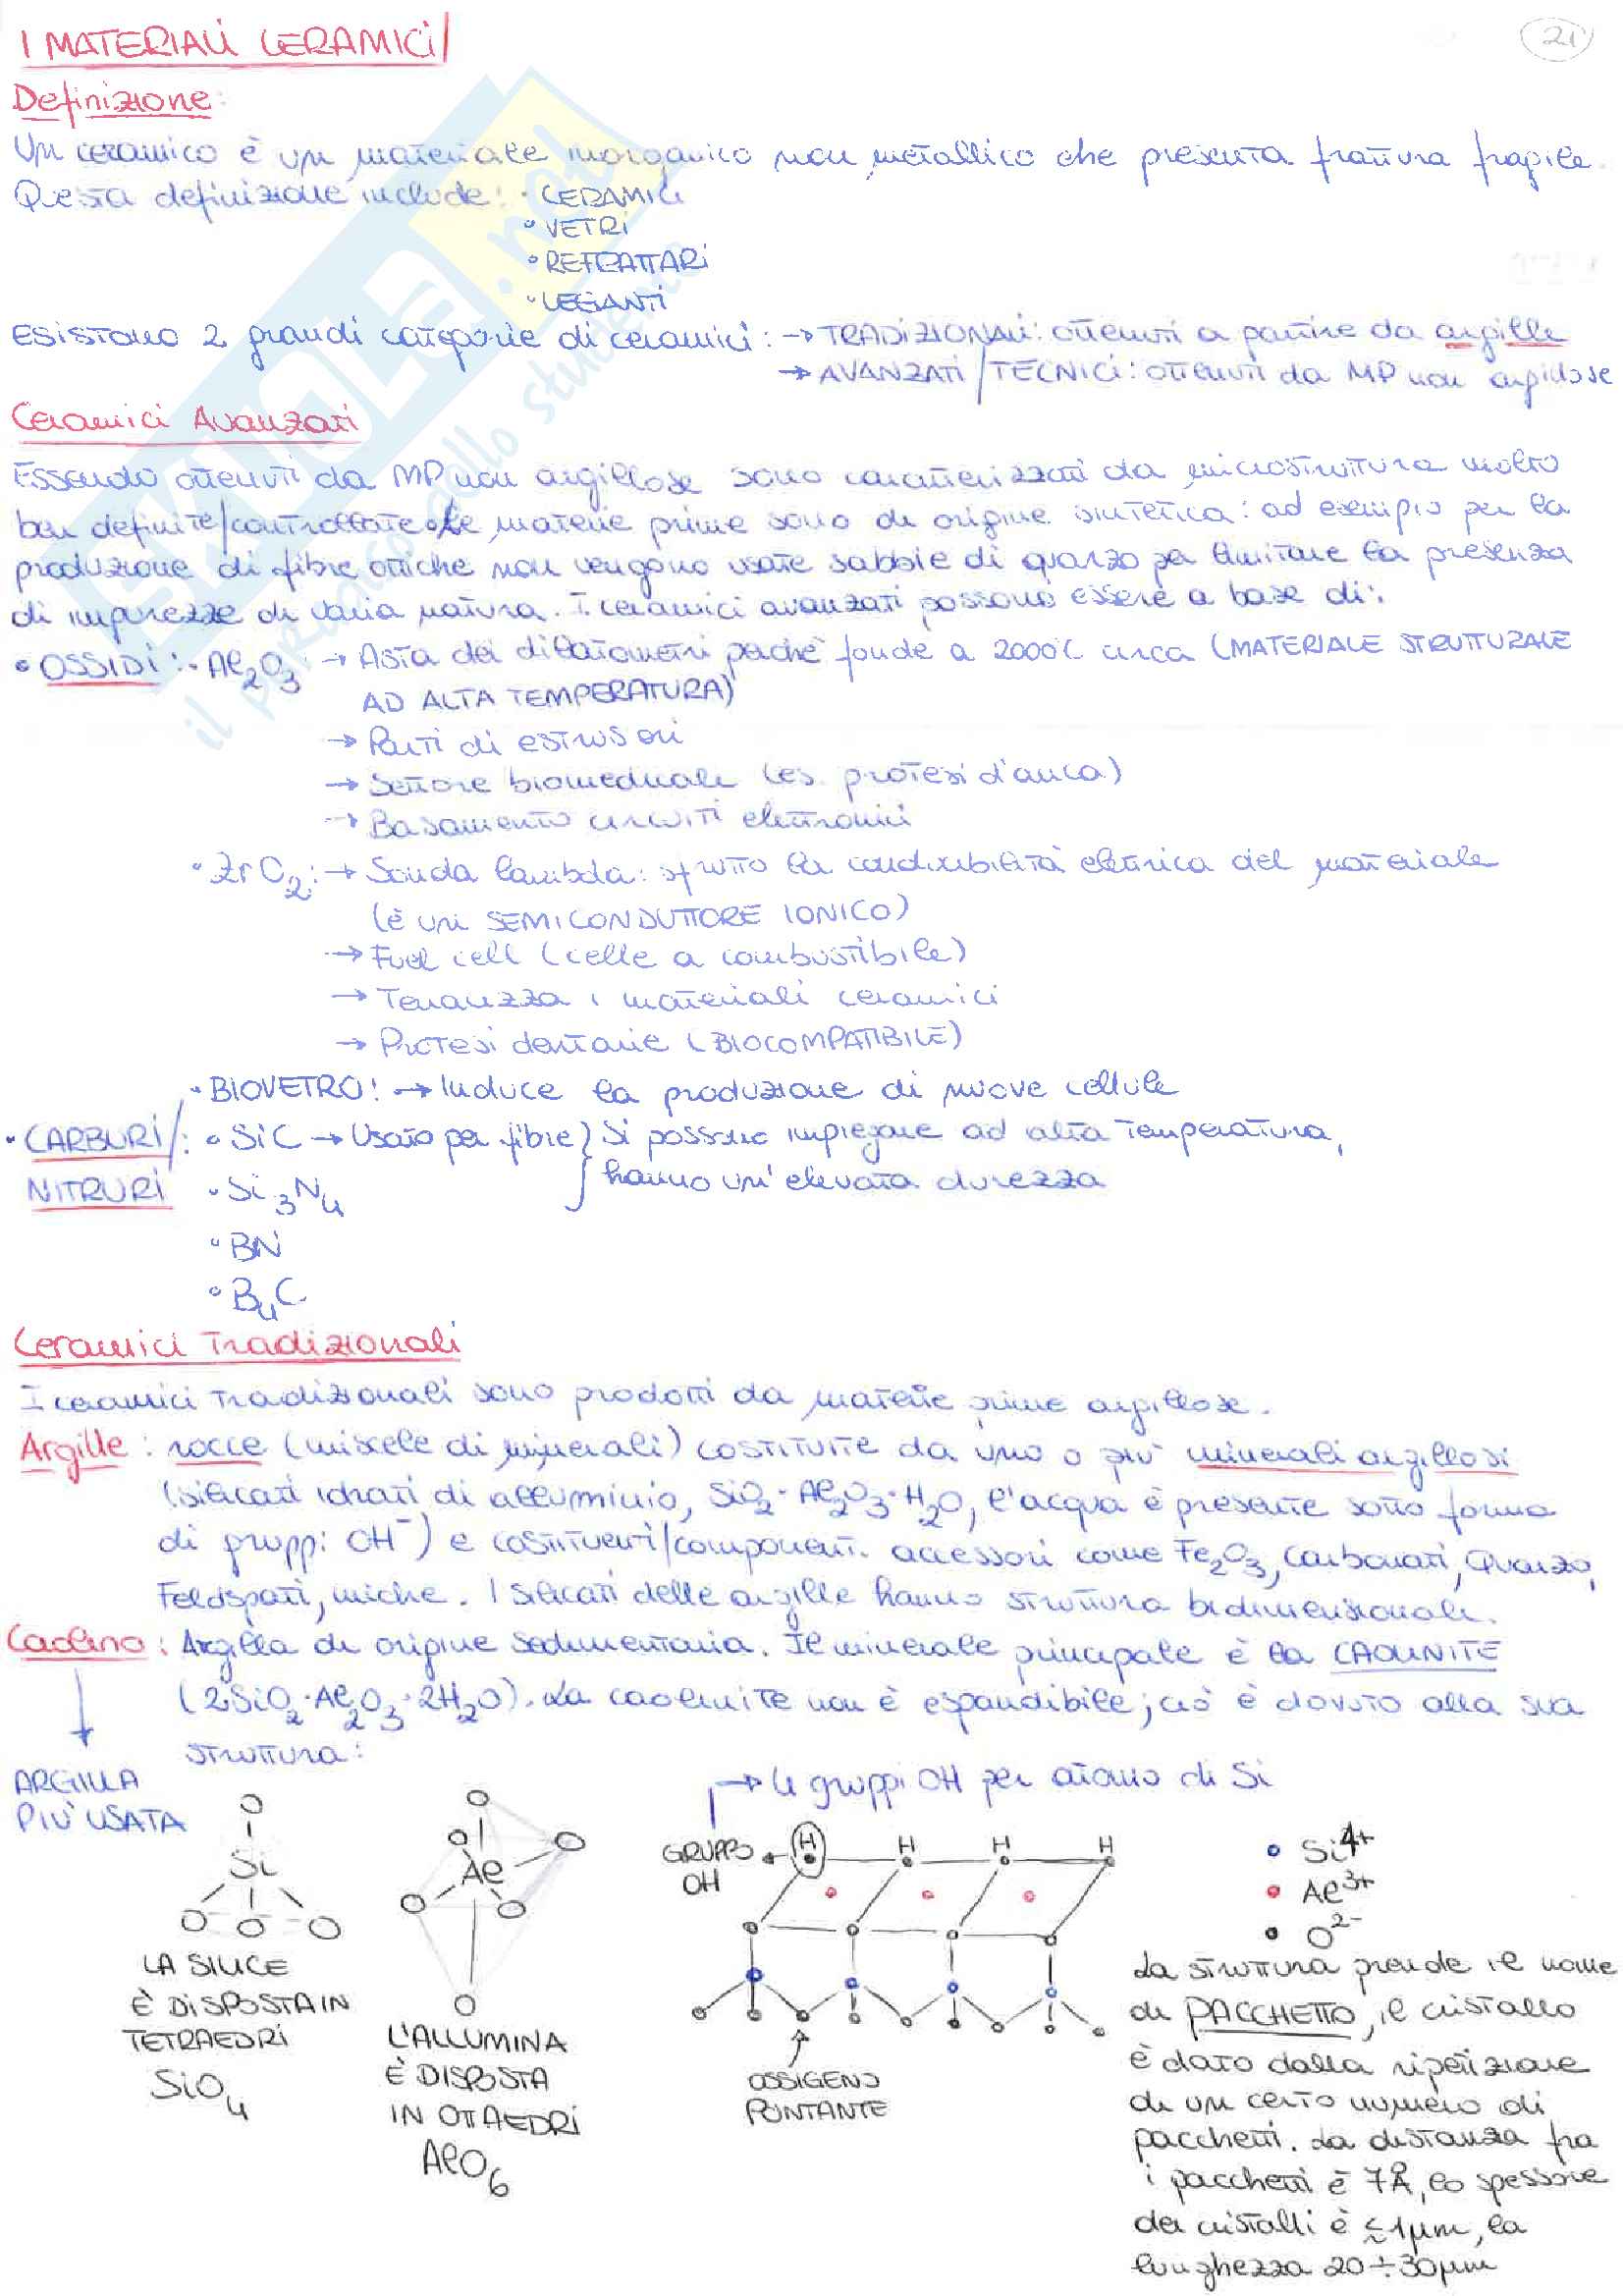 I MATERIALI CERAMICI
21
Definizione:
Un ceramico è un materiale inorganico non metallico che presenta frattura fragile.
Questa definizione include: • CERAMICI
• VETRI
• REFRATTARI
• LEGANTI
ESISTONO 2 grandi categorie di ceramici: → TRADIZIONALI: ottenuti a partire da argille
→ AVANZATI/TECNICI: ottenuti da MP non argillose
Ceramici Avanzati
Essendo ottenuti da MP non argillose sono caratterizzati da microstruttura molto
ben definite/controllate. Le materie prime sono di origine sintetica: ad esempio per la
produzione di fibre ottiche non vengono usate sabbie di quarzo per limitare la presenza
di impurezze di varia natura. I ceramici avanzati possono essere a base di:
• OSSIDI: • Al2O3 → Asta dei dilatometri perché fonde a 2000°C circa (MATERIALE STRUTTURALE
AD ALTA TEMPERATURA)
→ Parti di estrusori
→ Settore biomedicale (es. protesi d'anca)
→ Basamento circuiti elettronici
• ZrO2: → Sonda lambda: sfrutto la conducibilità elettrica del materiale
(è un SEMICONDUTTORE IONICO)
→ Fuel cell (celle a combustibile)
→ Tenacizza i materiali ceramici
→ Protesi dentarie (BIOCOMPATIBILE)
• BIOVETRO: → Induce la produzione di nuove cellule
• CARBURI/: • SiC → Usato per fibre } Si possono impiegare ad alta temperatura,
NITRURI • Si3N4 hanno un'elevata durezza
• BN
• B4C
Ceramici Tradizionali
I ceramici tradizionali sono prodotti da materie prime argillose.
Argille: rocce (miscele di minerali) costituite da uno o più minerali argillosi
(silicati idrati di alluminio, SiO2·Al2O3·H2O, l'acqua è presente sotto forma
di gruppi OH⁻) e costituenti/componenti accessori come Fe2O3, Carbonati, Quarzo,
Feldspati, miche. I silicati delle argille hanno struttura bidimensionale.
Caolino: Argilla di origine sedimentaria. Il minerale principale è la CAOLINITE
(2SiO2·Al2O3·2H2O). La caolinite non è espandibile; ciò è dovuto alla sua
struttura:
ARGILLA
PIÙ USATA
O
Si
O O O
LA SILICE
È DISPOSTA IN
TETRAEDRI
SiO4
O
O O
Al
O O
O
L'ALLUMINA
È DISPOSTA
IN OTTAEDRI
AlO6
→ 4 gruppi OH per atomo di Si
GRUPPO
OH
H H H H
OSSIGENO
PONTANTE
• Si4+
• Al3+
• O2-
La struttura prende il nome
di PACCHETTO, il cristallo
è dato dalla ripetizione
di un certo numero di
pacchetti. La distanza fra
i pacchetti è 7Å, lo spessore
dei cristalli è ≲1μm, la
lunghezza 20÷30μm
SKUOLA.net
il paradiso dello studente